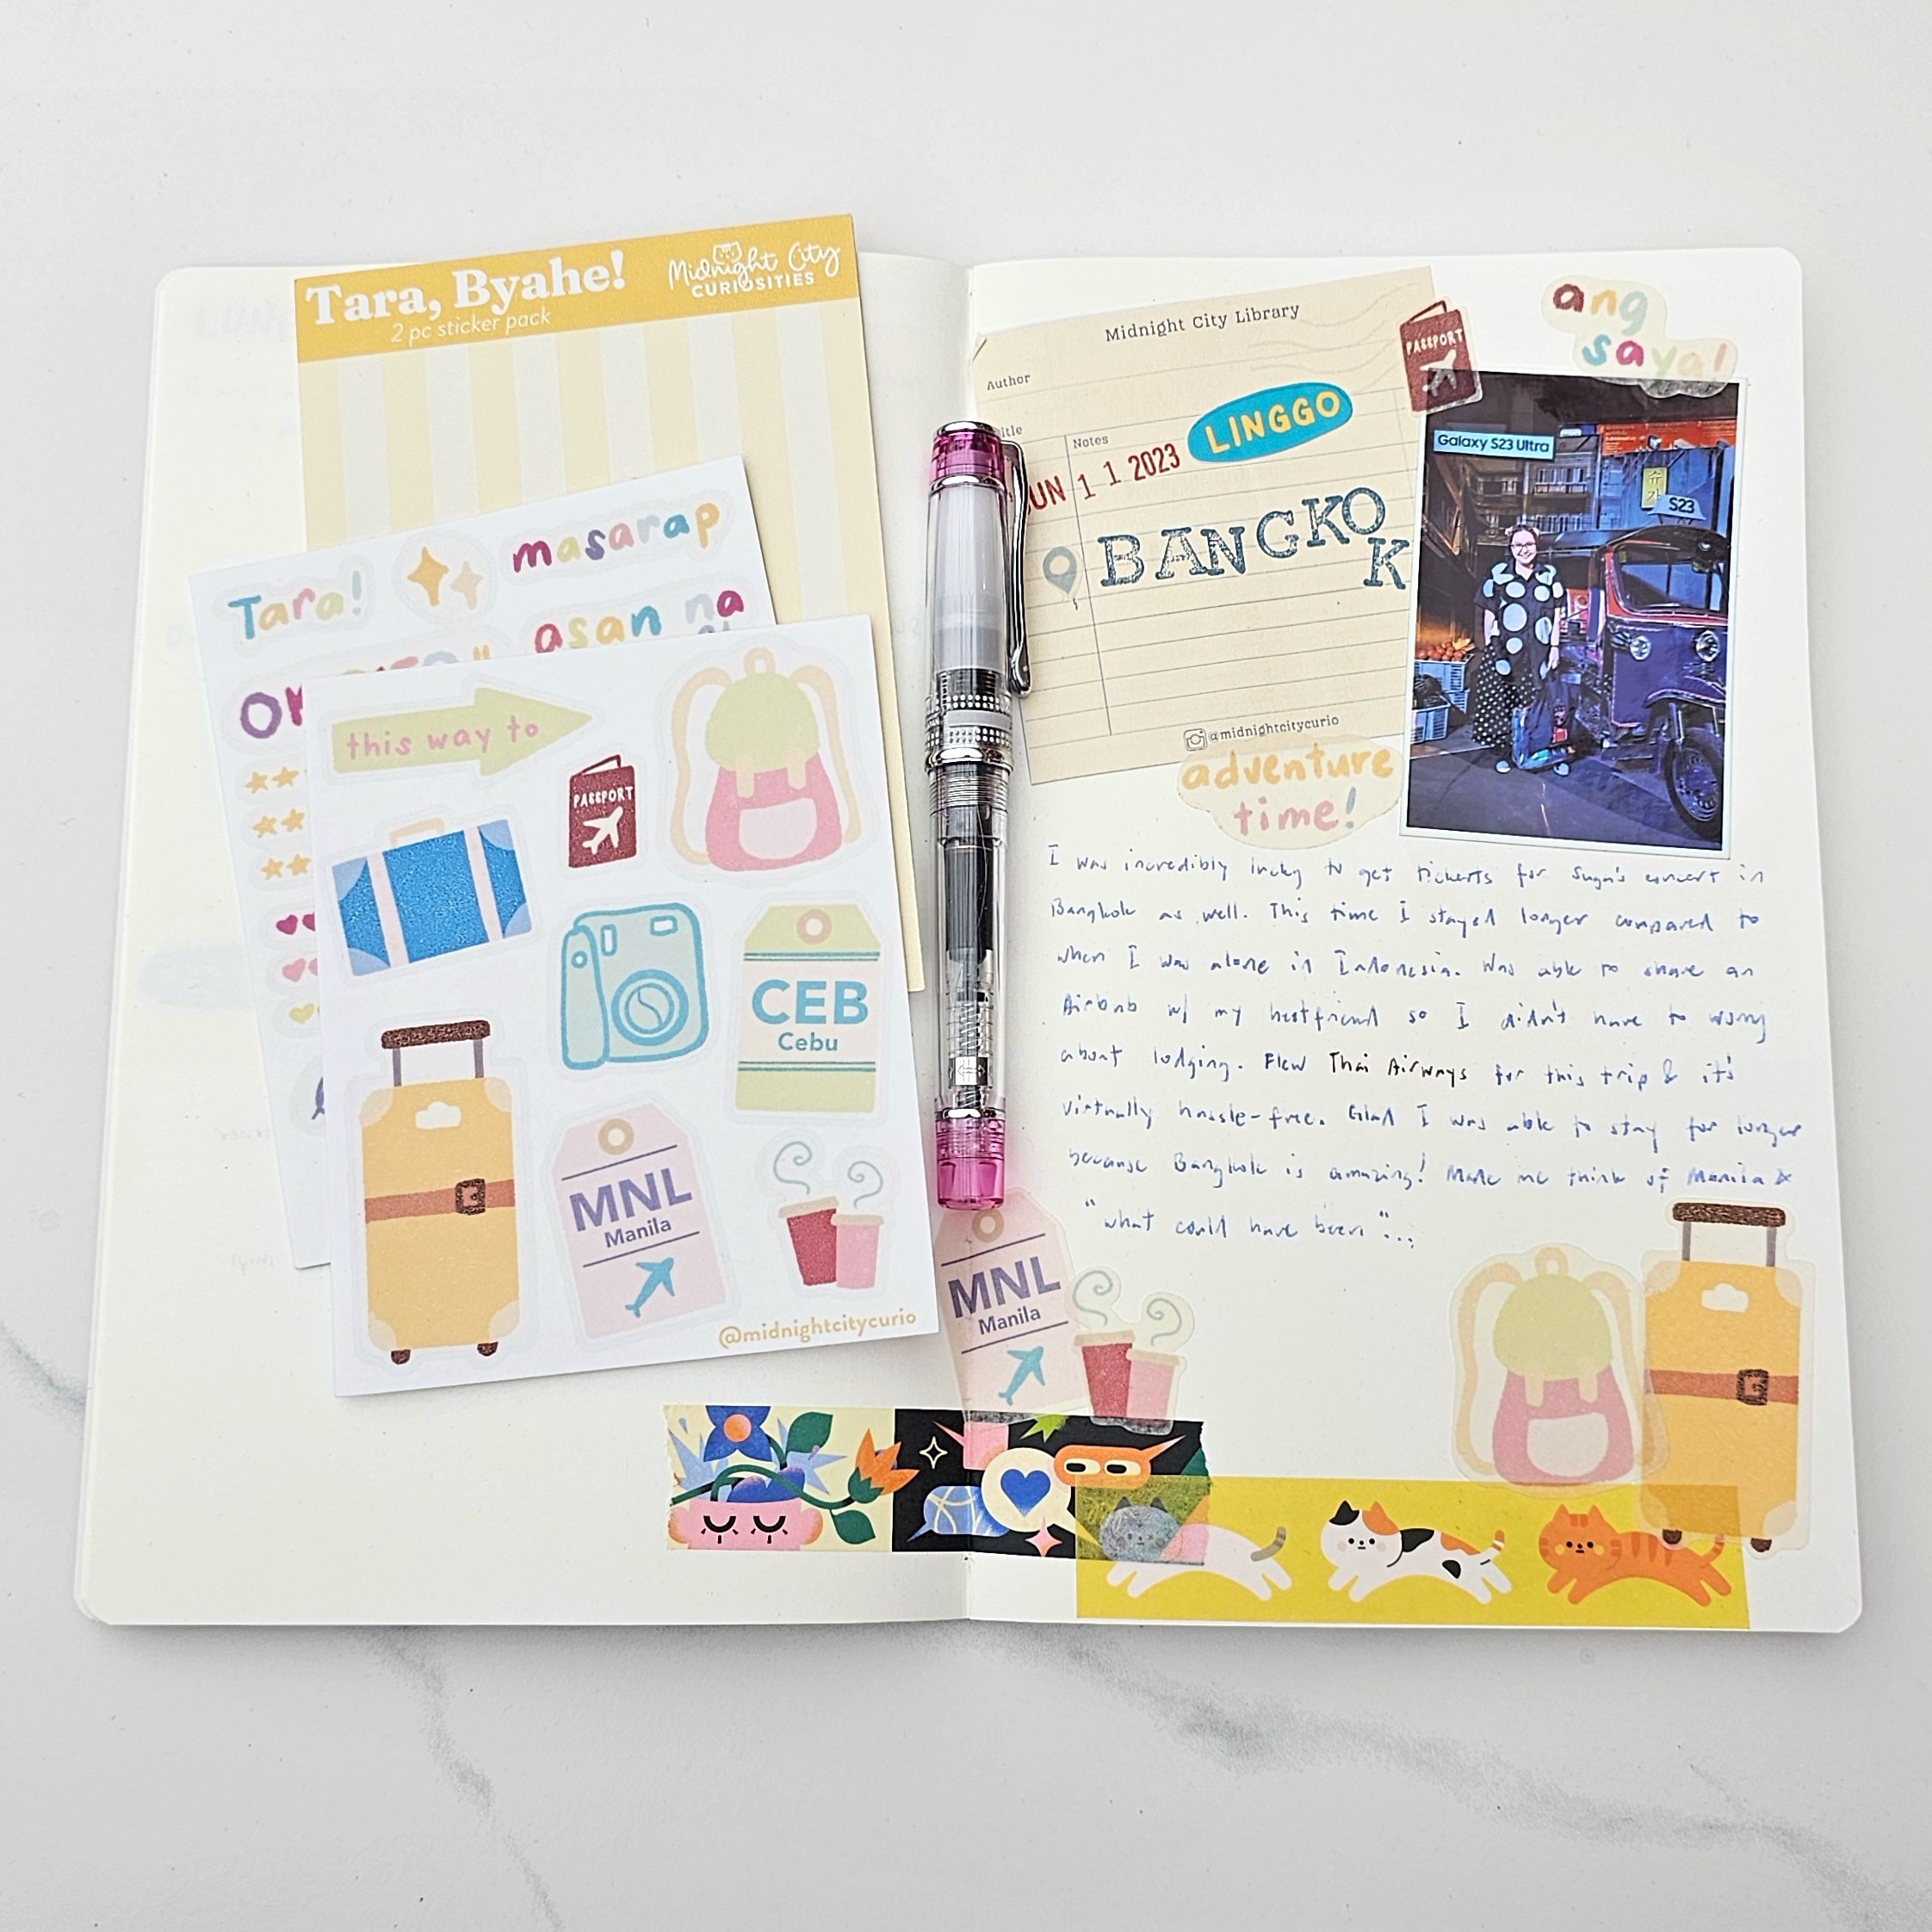 Tara, Byahe!
2 pc sticker pack
Midnight City
CURIOSITIES
Tara!
masarap
asan na
this way to
PASSPORT
CEB
Cebu
MNL
Manila
@midnightcitycurio
Midnight City Library
Author
Notes
UN 11 2023
LINGGO
BANGKOK
@midnightcitycurio
PASSPORT
ang
saya!
Galaxy S23 Ultra
슈가
S23
adventure
time!
I was incredibly lucky to get tickerts for Suga's concert in
Bangkok as well. This time I stayed longer compared to
when I was alone in Indonesia. Was able to share an
Airbnb w/ my bestfriend so I didn't have to worry
about lodging. Flew Thai Airways for this trip & it's
virtually hassle-free. Glad I was able to stay for longer
because Bangkok is amazing! Made me think of Manila &
"what could have been"...
MNL
Manila